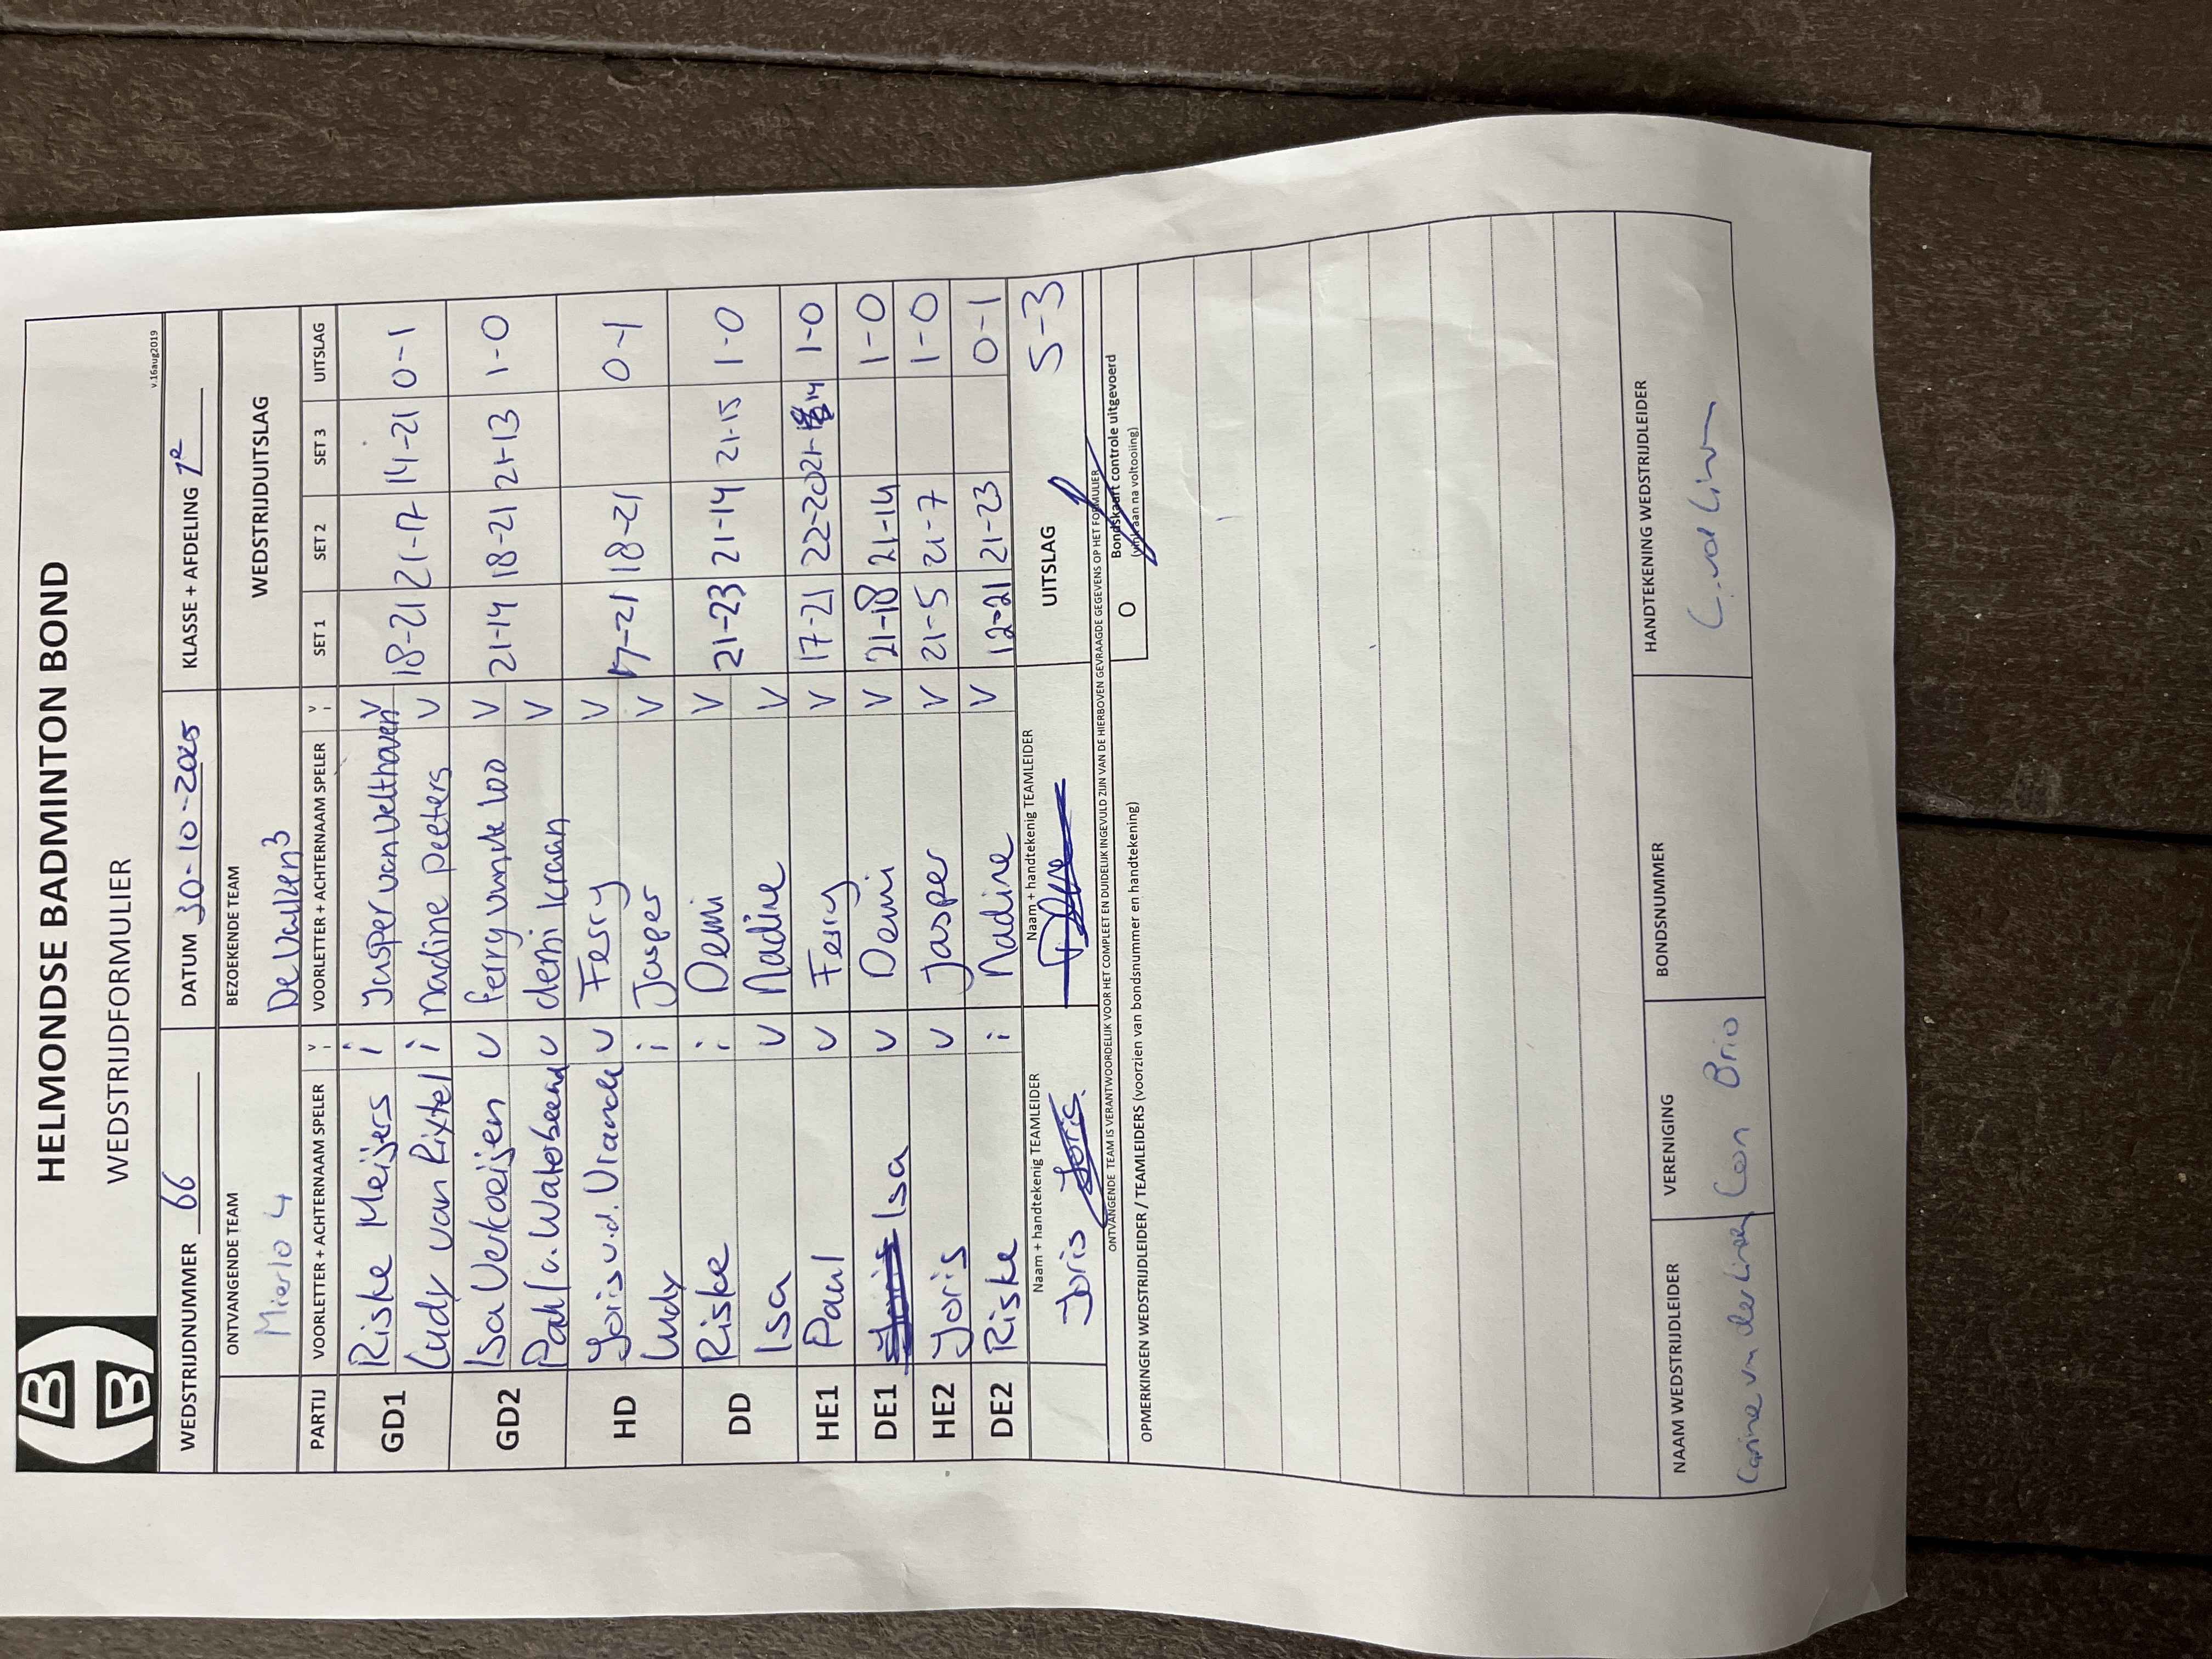 HELMONDSE BADMINTON BOND
WEDSTRIJDFORMULIER
v.16aug2019
WEDSTRIJDNUMMER 66 DATUM 30-10-2025 KLASSE + AFDELING 1e
ONTVANGENDE TEAM BEZOEKENDE TEAM WEDSTRIJDUITSLAG
Mierlo 4 De Valken 3
PARTIJ VOORLETTER + ACHTERNAAM SPELER V i VOORLETTER + ACHTERNAAM SPELER V i SET 1 SET 2 SET 3 UITSLAG
GD1 Riske Meijers i Jasper van Velthoven V 18-21 21-17 14-21 0-1
Ludy van Rixtel i nadine peeters V
GD2 Isa Verkoeijen v ferry van de loo V 21-14 18-21 21-13 1-0
Paul v. Waterbeemd v demi kraan V
HD Joris v.d. Vrande v Ferry V 17-21 18-21 0-1
Ludy i Jasper V
DD Riske i Demi V 21-23 21-14 21-15 1-0
Isa v Nadine V
HE1 Paul v Ferry V 17-21 22-20 21-14 1-0
DE1 Isa v Demi V 21-18 21-14 1-0
HE2 Joris v Jasper V 21-5 21-7 1-0
DE2 Riske i Nadine V 12-21 21-23 0-1
Naam + handtekenig TEAMLEIDER Naam + handtekenig TEAMLEIDER UITSLAG 5-3
Joris Joris
ONTVANGENDE TEAM IS VERANTWOORDELIJK VOOR HET COMPLEET EN DUIDELIJK INGEVULD ZIJN VAN DE HIERBOVEN GEVRAAGDE GEGEVENS OP HET FORMULIER
O Bondskaart controle uitgevoerd
(vink aan na voltooiing)
OPMERKINGEN WEDSTRIJDLEIDER / TEAMLEIDERS (voorzien van bondsnummer en handtekening)
NAAM WEDSTRIJDLEIDER VERENIGING BONDSNUMMER HANDTEKENING WEDSTRIJDLEIDER
Carine v der Linden Con Brio